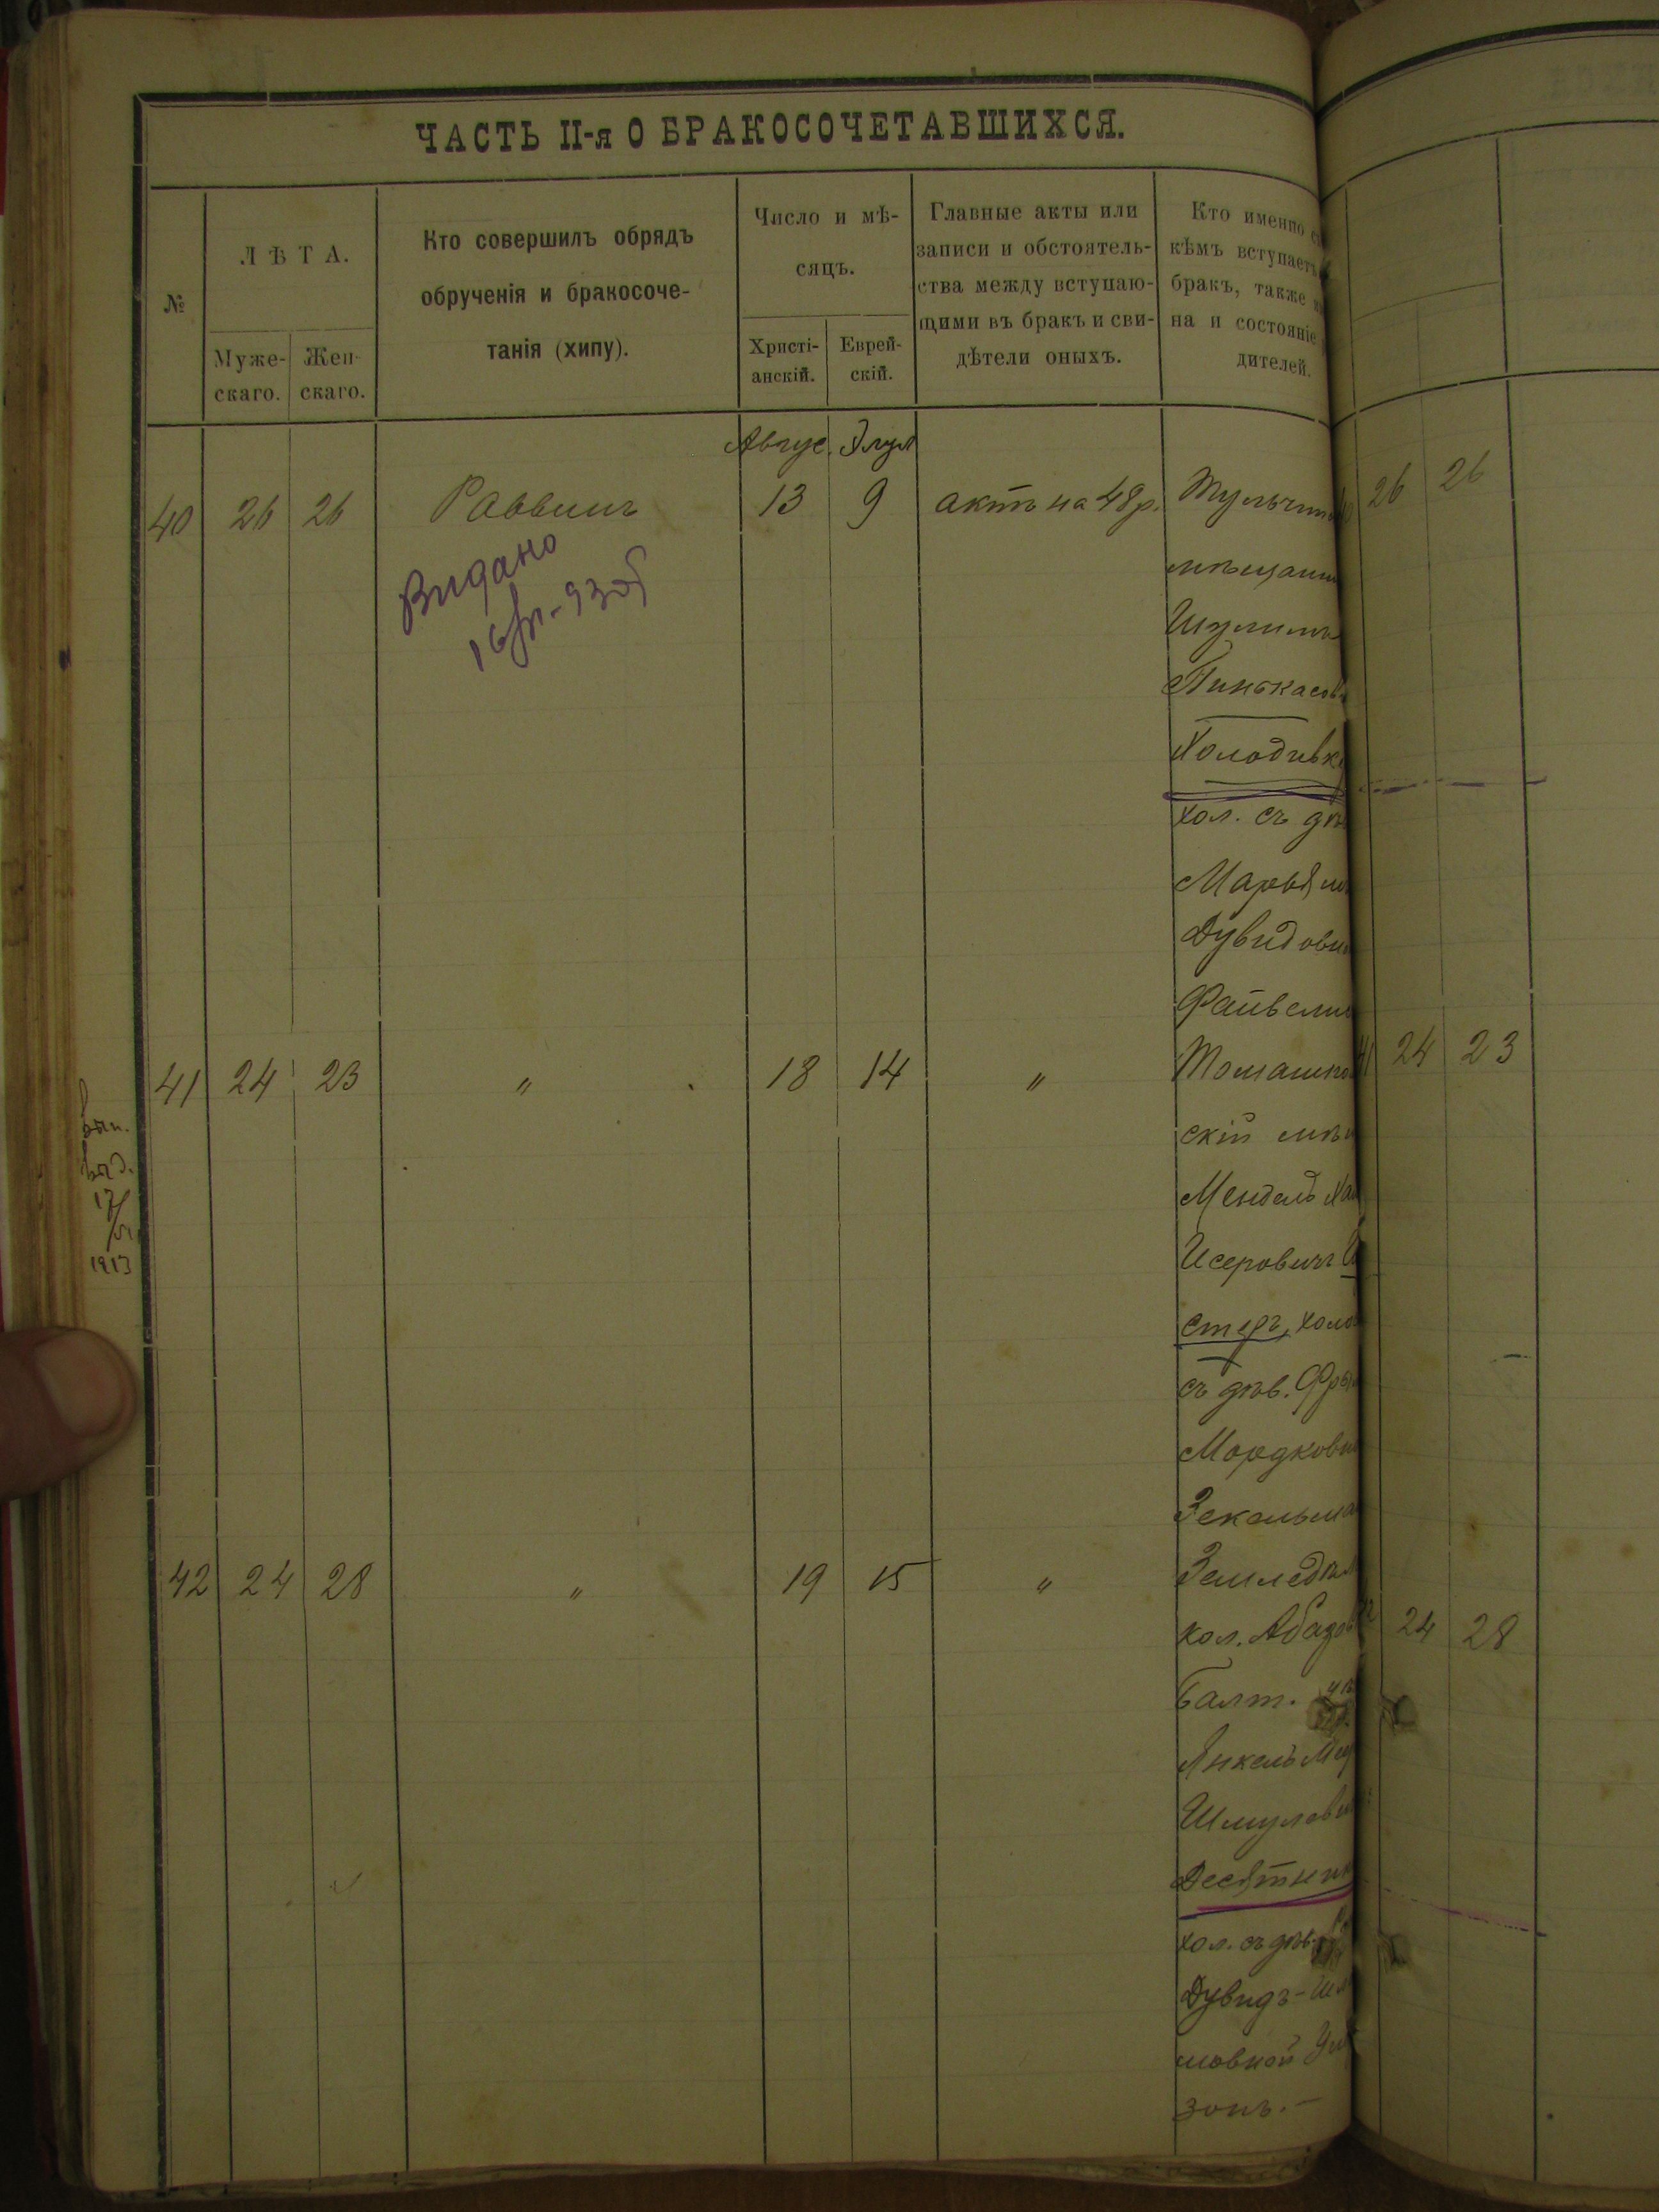 ЧАСТЬ II-я О БРАКОСОЧЕТАВШИХСЯ.
№
ЛѢТА.
Муже-
скаго.
Жен-
скаго.
Кто совершилъ обрядъ
обрученія и бракосоче-
танія (хипу).
Число и мѣ-
сяцъ.
Христі-
анскій.
Еврей-
скій.
Главные акты или
записи и обстоятель-
ства между вступаю-
щими въ бракъ и сви-
дѣтели оныхъ.
Кто именно съ
кѣмъ вступаетъ
бракъ, также
на и состояніе
дителей.
Авгус. Элул
40 26 26 Раввинъ 13 9 актъ на 48 р.
Видано
мѣщанин
Шулимъ
Пинькасов
Холодивк
хол. съ дѣ
Марьям
Дувидовн
Файвели
41 24 23 " 18 14 " Томашпо
скій мѣщ
Мендель Ха
Исеровичъ
стеръ, холо
съ дѣв. Фры
Мордковн
Зекельма
вып.
выд.
17/
1913
42 24 28 " 19 15 " Земледѣл
кол. Абазов
Балт.
Янкель
Шмулев
Десятник
хол. съ дѣв.
Дувидъ-
мовной
зонъ.-
26 26
24 23
24 28